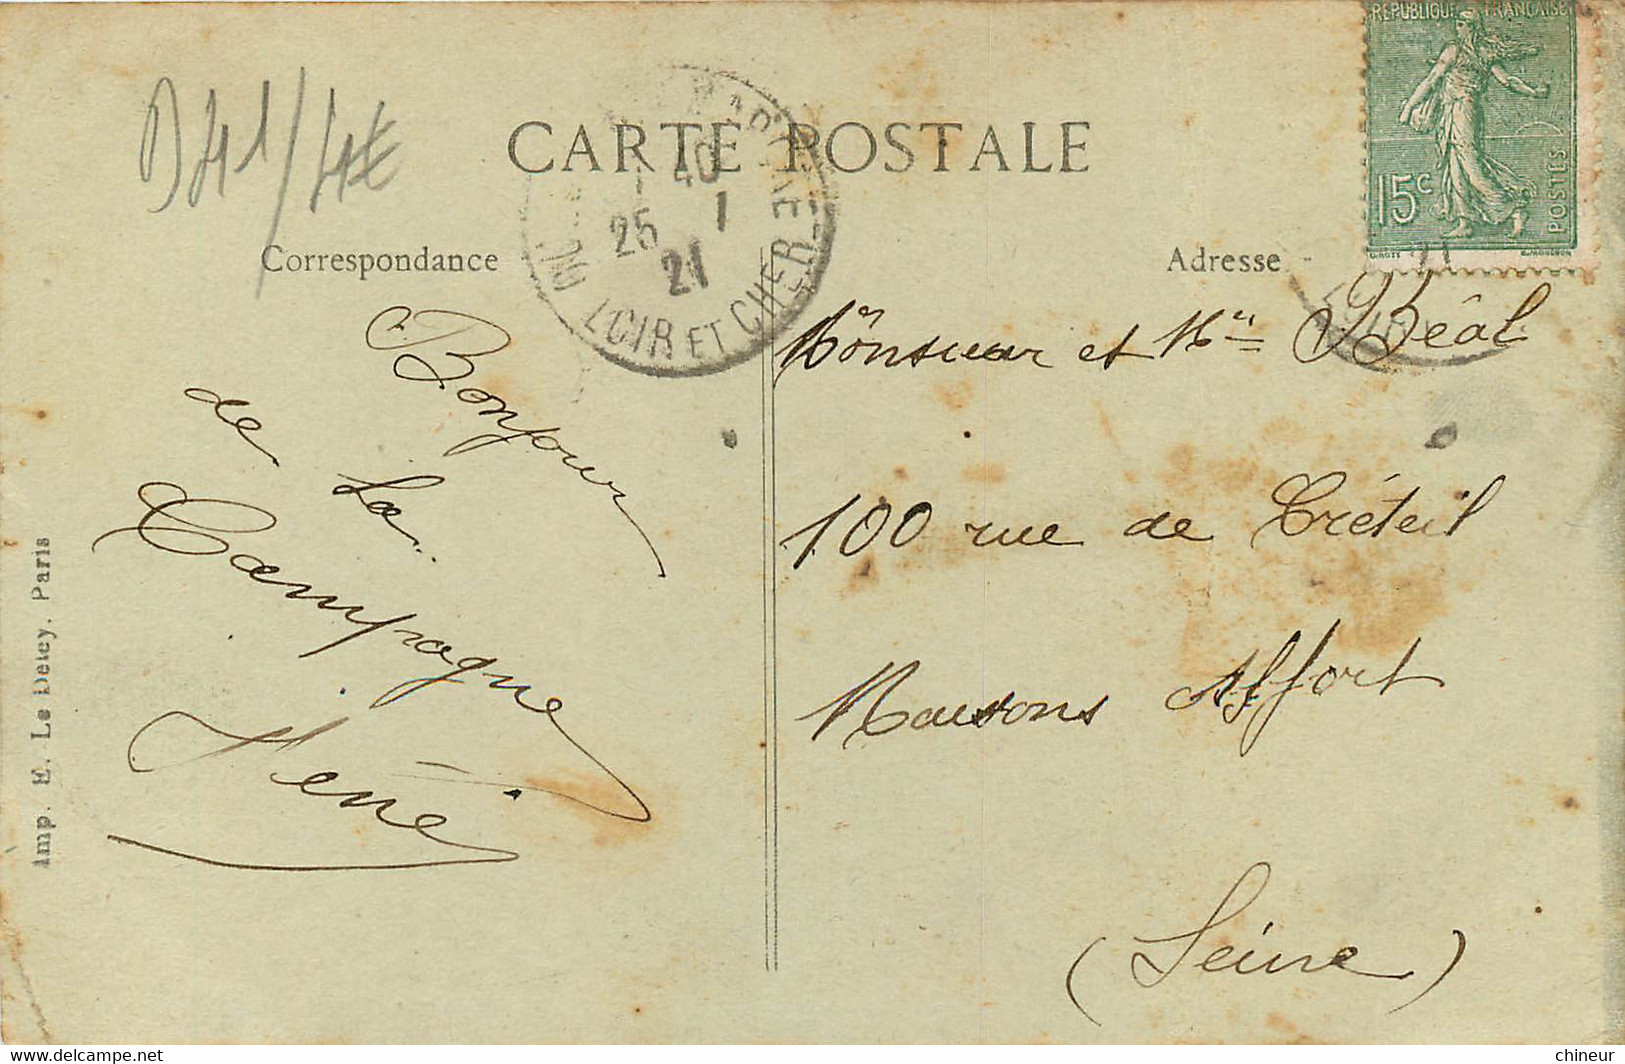 RÉPUBLIQUE FRANÇAISE
15c
POSTES
D41/4€
CARTE POSTALE
40
25 1
21
LOIR ET CHER
Correspondance
Adresse
Bonjour
de la
Campagne
René
Monsieur et Mme Béal
100 rue de Créteil
Maisons Alfort
(Seine)
Imp. E. Le Deley. Paris
chineur